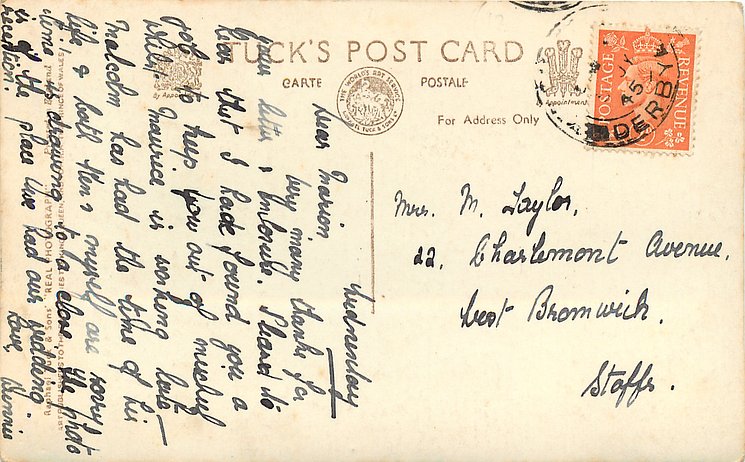 TUCK'S POST CARD
CARTE POSTALE
For Address Only
By Appointment
Appointment
THE WORLD'S ART SERVICE
POSTAGE REVENUE
DERBY
JY 45
Wednesday
Dear Marion
Very many thanks for
your letter & enclosed. Pleased to
hear that I have found you a
job to keep you out of mischief
Maurice is working late
Malcolm has had the time of his
life & both Ken & myself are sorry
is drawing to a close. The photo
is of the place we had our wedding
reception.
Love, Dennis
Mrs. M. Taylor,
22. Charlemont Avenue,
West Bromwich.
Staffs.
Raphael Tuck & Sons' "REAL PHOTOGRAPH"
England